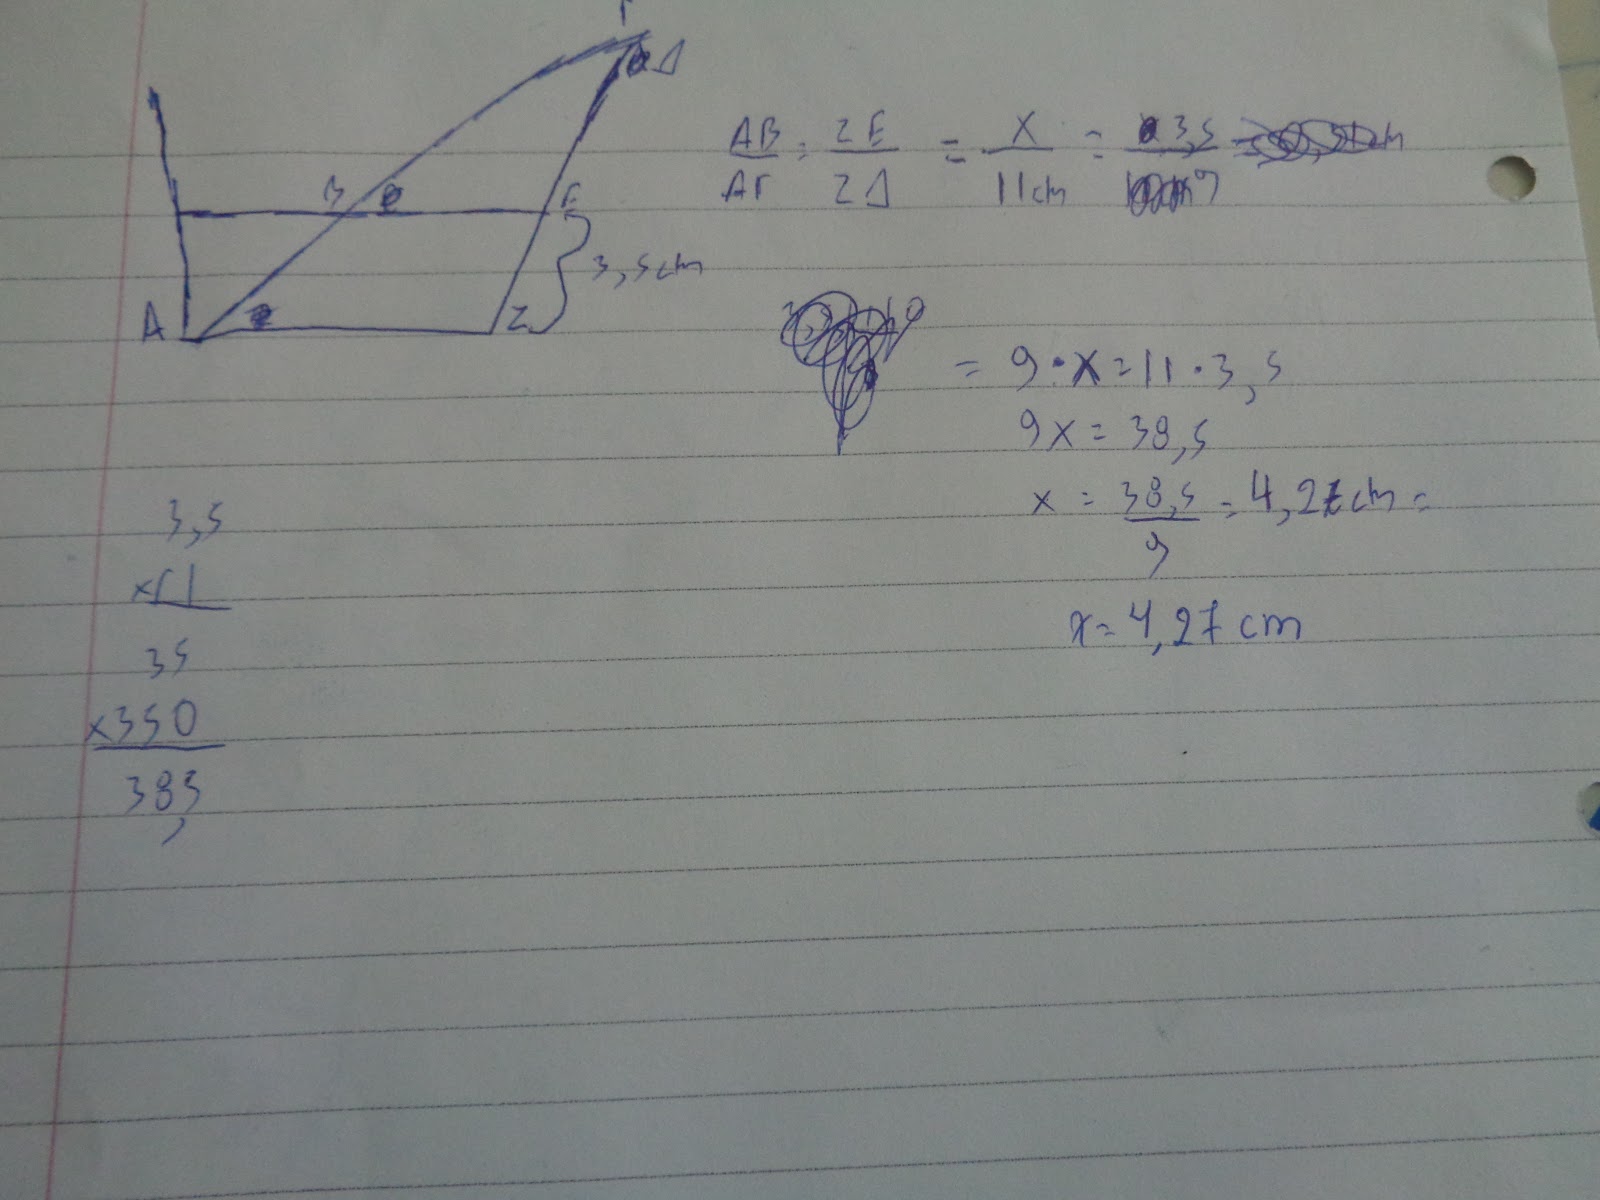 Γ
Δ
B
E
3,5cm
A
Z
AB/AΓ = ZE/ZΔ = x/11cm = 3,5/9
= 9·x=11·3,5
9x=38,5
x = 38,5/9 = 4,27cm =
x=4,27 cm
3,5
x11
35
x350
38,5